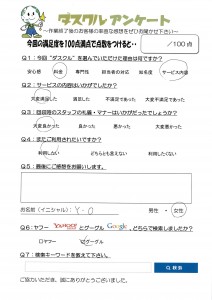 ダスクル アンケート
～作業終了後のお客様の率直な感想をぜひお聞かせ下さい～
今回の満足度を100点満点で点数をつけると・・ /100 点
Q1：今回“ダスクル”を選んでいただけた理由は何ですか？
安心感 料金 専門性 担当者の対応 知名度 サービス内容
Q2：サービスの内容はいかがでしたか？
大変満足した 満足した 不満足であった 大変不満足であった
大変良かった 良かった 悪かった 大変悪かった
Q4：またご利用されたいですか？
利用したい どちらとも言えない 利用したくない
Q5：最後にご感想をお願いします。
お名前（イニシャル）： Y-O 男性 ・ 女性
Q6：ヤフー YAHOO! とグーグル Google、どちらで検索しましたか？
□ヤフー グーグル
Q7：検索キーワードを教えて下さい。
検索
ご協力いただき、誠にありがとうございました。